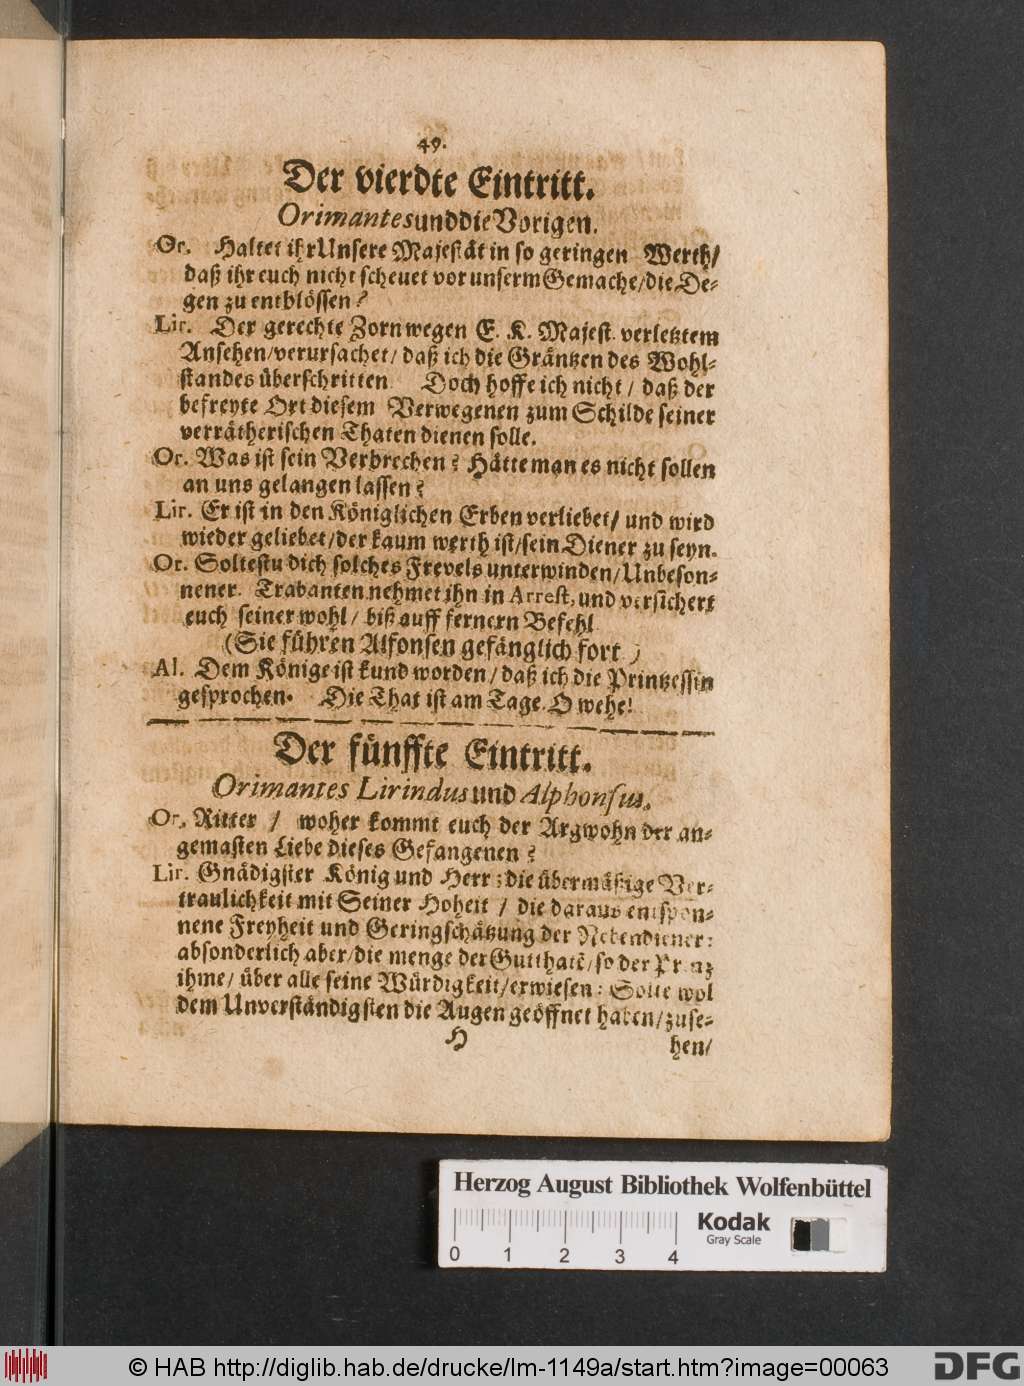 49.
Der vierdte Eintritt.
Orimantes und die Vorigen.
Or. Haltet ihr Unsere Majestät in so geringen Werth/
daß ihr euch nicht scheuet vor unserm Gemache/die De-
gen zu entblössen?
Lir. Der gerechte Zorn wegen E. K. Majest. verletztem
Ansehen/verursachet/ daß ich die Gräntzen des Wohl-
standes überschritten Doch hoffe ich nicht / daß der
befreyte Ort diesem Verwegenen zum Schilde seiner
verrätherischen Thaten dienen solle.
Or. Was ist sein Verbrechen? Hätte man es nicht sollen
an uns gelangen lassen?
Lir. Er ist in den Königlichen Erben verliebet/ und wird
wieder geliebet/der kaum werth ist/sein Diener zu seyn.
Or. Soltestu dich solches Frevels unterwinden/Unbeson-
nener. Trabanten nehmet ihn in Arrest, und versichert
euch seiner wohl / biß auff fernern Befehl
(Sie führen Alfonsen gefänglich fort)
Al. Dem Könige ist kund worden/ daß ich die Printzessin
gesprochen. Die That ist am Tage. O wehe!
Der fünffte Eintritt.
Orimantes Lirindus und Alphonsus.
Or. Ritter / woher kommt euch der Argwohn der an-
gemasten Liebe dieses Gefangenen?
Lir. Gnädigster König und Herr; die übermäßige Ver-
traulichkeit mit Seiner Hoheit / die daraus entspon-
nene Freyheit und Geringschätzung der Nebendiener:
absonderlich aber/die menge der Gutthatē/so der Prinz
ihme/ über alle seine Würdigkeit/erwiesen: Solte wol
dem Unverständigsten die Augen geöffnet haben/zuse-
H hen/
Herzog August Bibliothek Wolfenbüttel
Kodak
Gray Scale
0 1 2 3 4
© HAB http://diglib.hab.de/drucke/lm-1149a/start.htm?image=00063
DFG